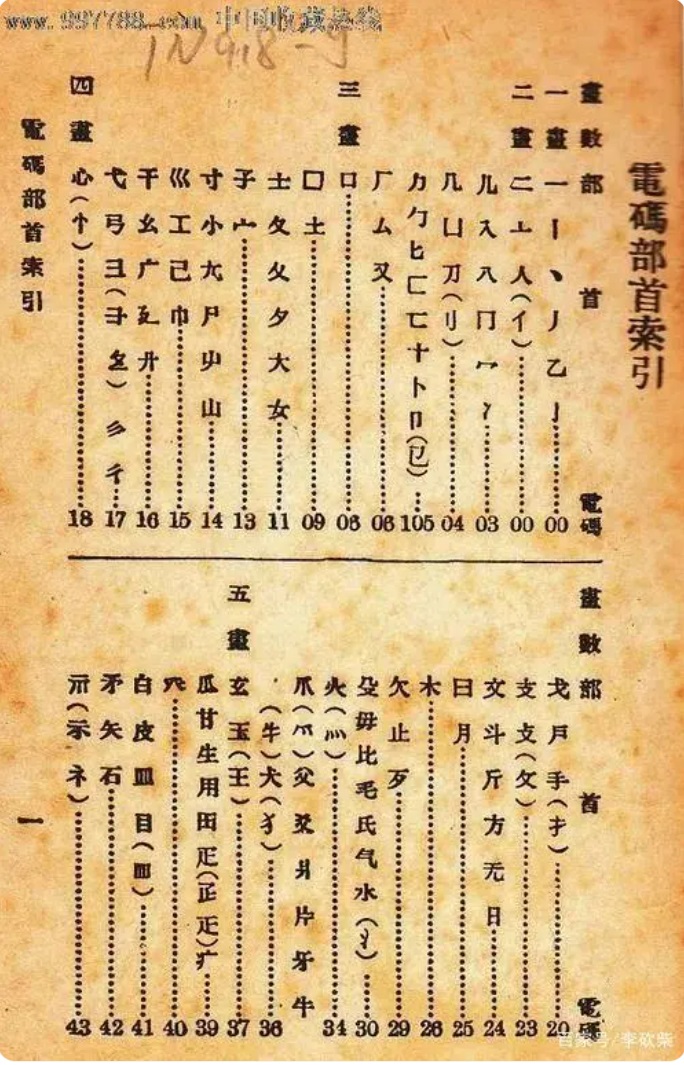 www.997788.com 中国收藏热线
電碼部首索引
畫數部首電碼
一畫 一丨丶丿乙亅 00
二畫 二亠人(亻) 00
儿入八冂冖冫 03
几凵刀(刂) 04
力勹匕匚匸十卜卩(㔾) 105
厂厶又 06
三畫 口 06
囗土 09
士夂夊夕大女 11
子宀 13
寸小尢尸屮山 14
巛工己巾 15
干幺广廴廾 16
弋弓彐(彑)彡彳 17
四畫 心(忄) 18
電碼部首索引
畫數部首電碼
戈戶手(扌) 20
支攴(攵) 23
文斗斤方无日 24
曰月 25
木 26
欠止歹 29
殳毋比毛氏气水(氵) 30
火(灬) 34
爪(爫)父爻爿片牙牛
(牜)犬(犭) 36
五畫 玄玉(王) 37
瓜甘生用田疋疒 39
癶 40
白皮皿目(罒) 41
矛矢石 42
示(礻) 43
一
百家号/李砍柴